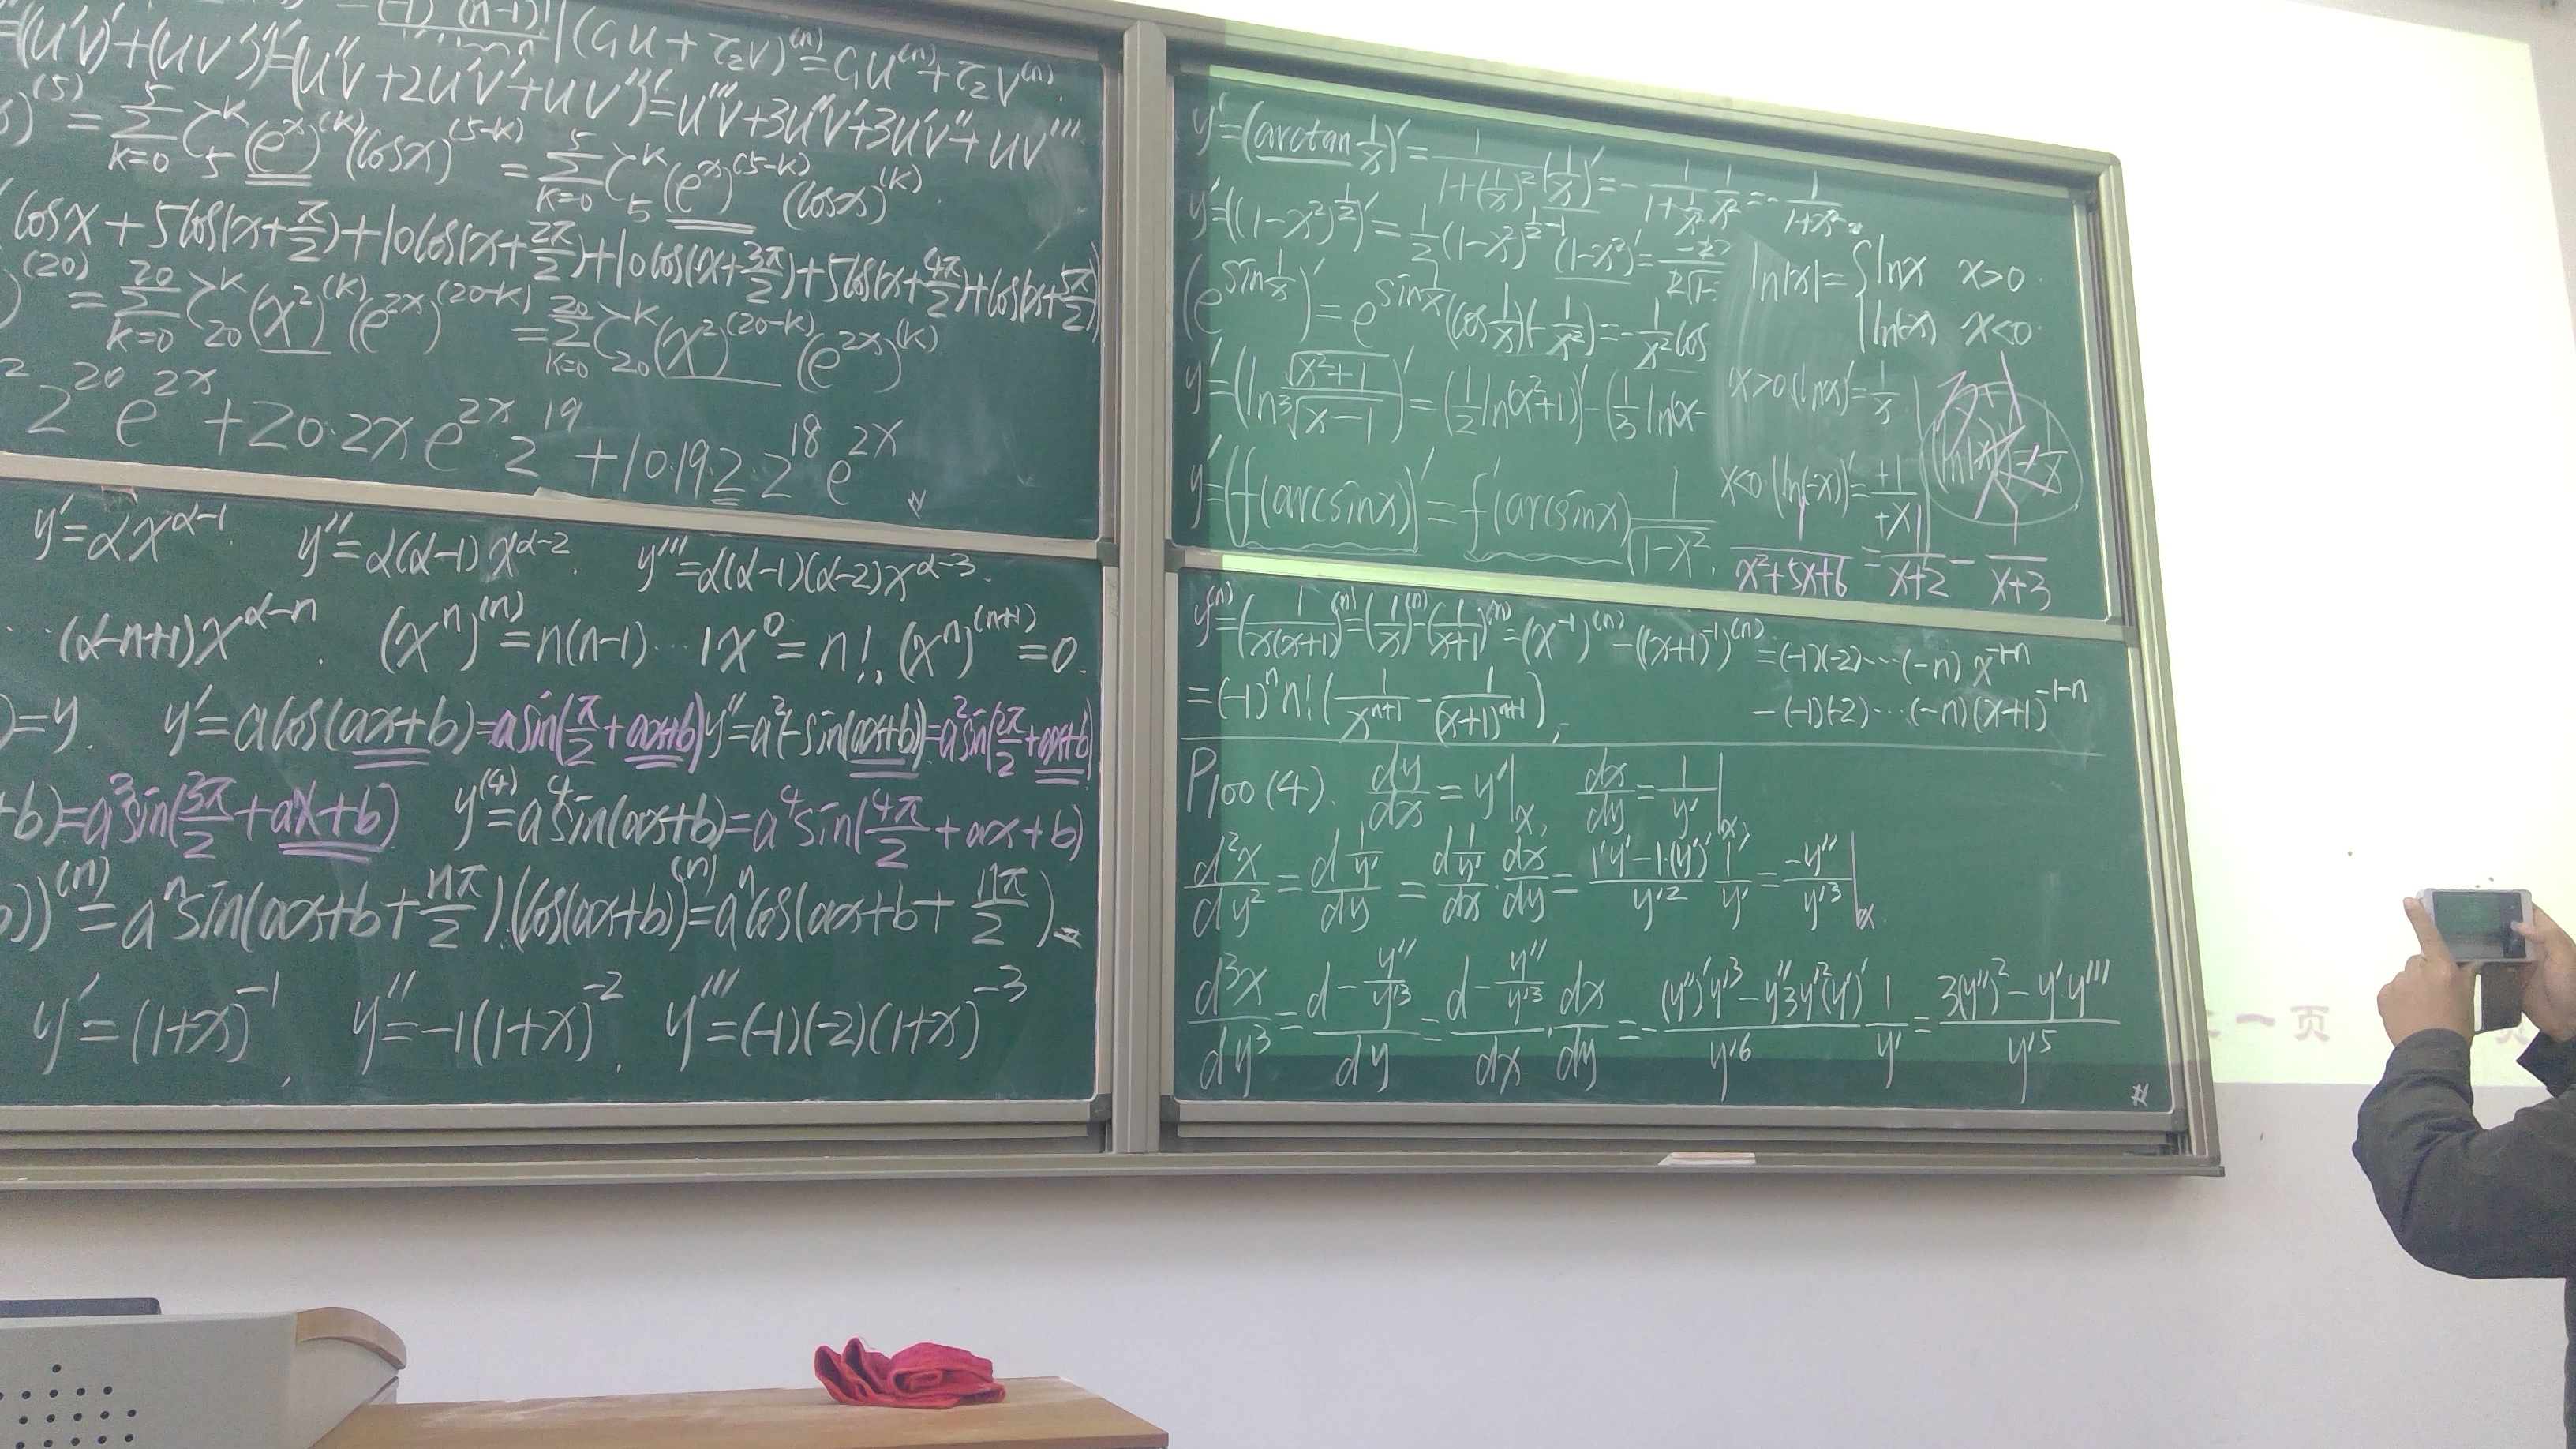 (-1) (n-1)! | (C₁u + C₂v)⁽ⁿ⁾ = C₁u⁽ⁿ⁾ + C₂v⁽ⁿ⁾.
=(u'v)'+(uv')'=(u''v+2u'v'+uv'')'=u'''v+3u''v'+3u'v''+uv'''
)⁽⁵⁾ = ∑_{k=0}^{5} C₅ᵏ (eˣ)⁽ᵏ⁾ (cosx)⁽⁵⁻ᵏ⁾ = ∑_{k=0}^{5} C₅ᵏ (eˣ)⁽⁵⁻ᵏ⁾ (cosx)⁽ᵏ⁾
cosx + 5cos(x+π/2) + 10cos(x+2π/2) + 10cos(x+3π/2) + 5cos(x+4π/2) + cos(x+5π/2)
)⁽²⁰⁾ = ∑_{k=0}^{20} C₂₀ᵏ (x²)⁽ᵏ⁾ (e²ˣ)⁽²⁰⁻ᵏ⁾ = ∑_{k=0}^{20} C₂₀ᵏ (x²)⁽²⁰⁻ᵏ⁾ (e²ˣ)⁽ᵏ⁾
² 2²⁰ e²ˣ + 20·2x e²ˣ 2¹⁹ + 10·19·2·2¹⁸ e²ˣ
y'=αx^{α-1}. y''=α(α-1)x^{α-2}. y'''=α(α-1)(α-2)x^{α-3}.
··(α-n+1)x^{α-n}. (xⁿ)⁽ⁿ⁾=n(n-1)···1x⁰=n!, (xⁿ)⁽ⁿ⁺¹⁾=0.
)=y. y'=acos(ax+b)=asin(π/2+ax+b) y''=a²(-sin(ax+b))=a²sin(2π/2+ax+b)
+b)=a³sin(3π/2+ax+b) y⁽⁴⁾=a⁴sin(ax+b)=a⁴sin(4π/2+ax+b)
))⁽ⁿ⁾=aⁿsin(ax+b+nπ/2).(cos(ax+b))⁽ⁿ⁾=aⁿcos(ax+b+nπ/2).
y'=(1+x)⁻¹, y''=-1(1+x)⁻². y'''=(-1)(-2)(1+x)⁻³
y'=(arctan 1/x)'=1/(1+(1/x)²)(1/x)'=-1/(1+1/x²) 1/x²=-1/(1+x²).
y'=((1-x²)^{1/2})'=1/2(1-x²)^{1/2-1}(1-x²)'=
(e^{sin 1/x})'=e^{sin 1/x}(cos 1/x)(-1/x²)=-1/x² cos
y'=(ln √(x²+1)/³√(x-1))'=(1/2 ln(x²+1))'-(1/3 ln(x-
y'=(f(arcsinx))'=f'(arcsinx) 1/√(1-x²).
ln|x|={lnx x>0.
ln(-x) x<0.
x>0 (lnx)'=1/x
x<0 (ln(-x))'=+1/+x
(ln|x|)'=1/x
1/(x²+5x+6)=1/(x+2)-1/(x+3)
y⁽ⁿ⁾=(1/(x(x+1)))⁽ⁿ⁾=(1/x)⁽ⁿ⁾-(1/(x+1))⁽ⁿ⁾=(x⁻¹)⁽ⁿ⁾-((x+1)⁻¹)⁽ⁿ⁾=(-1)(-2)···(-n)x⁻¹⁻ⁿ
-(-1)(-2)···(-n)(x+1)⁻¹⁻ⁿ
=(-1)ⁿn!(1/xⁿ⁺¹-1/(x+1)ⁿ⁺¹).
P100(4). dy/dx=y'|ₓ, dx/dy=1/y'|ₓ,
d²x/dy²=d(1/y')/dy=d(1/y')/dx·dx/dy=(1'y'-1·(y')')/y'² 1/y'=-y''/y'³|ₓ.
d³x/dy³=d-(y''/y'³)/dy=d-(y''/y'³)/dx·dx/dy=-((y'')'y'³-y''3y'²(y')')/y'⁶ 1/y'=(3(y'')²-y'y''')/y'⁵
一页